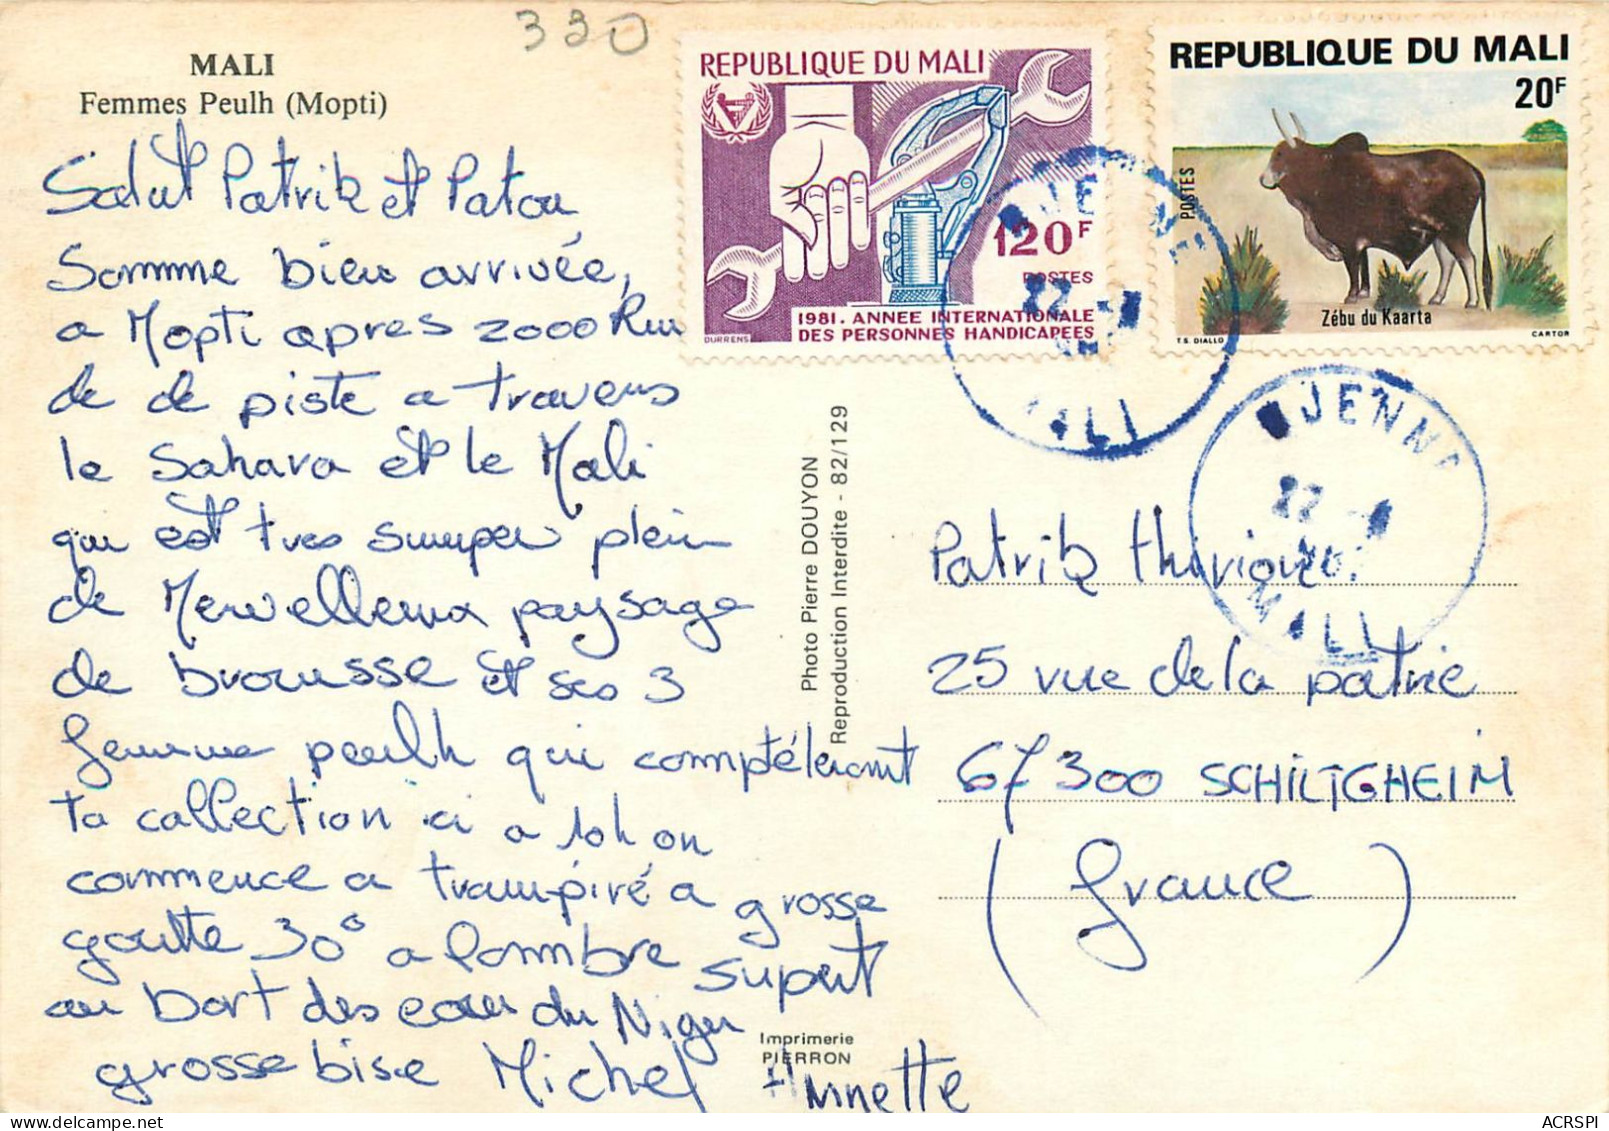 330
MALI
Femmes Peulh (Mopti)
Salut Patrik et Patou
Somme bien arrivée,
a Mopti apres 2000 Km
de de piste a travers
le Sahara et le Mali
qui est tres sumper plein
de Merveilleux paysage
de brousse et ses 3
femme peulh qui complèteront
ta collection ici a 10h on
commence a trampiré a grosse
goutte 30° a l'ombre
au bort des eaux du Niger
grosse bise Michel Annette
Photo Pierre DOUYON
Reproduction Interdite - 82/129
Imprimerie
PIERRON
REPUBLIQUE DU MALI
120F
POSTES
1981. ANNEE INTERNATIONALE
DES PERSONNES HANDICAPEES
DURRENS
REPUBLIQUE DU MALI
20F
POSTES
Zébu du Kaarta
T.S. DIALLO
CARTOR
DJENNE
22
MALI
DJENNE
22
MALI
Patrik
25 rue de la patrie
67300 SCHILTIGHEIM
(France)
ACRSPI